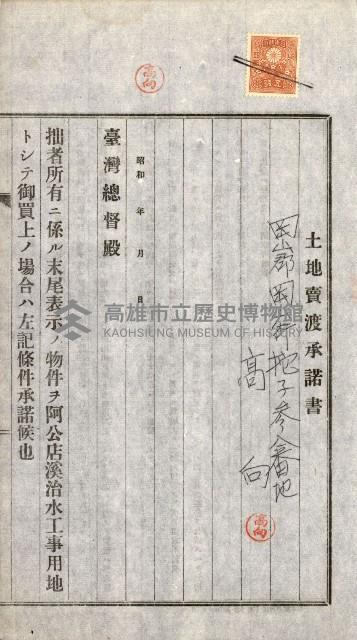 土地賣渡承諾書
岡山郡岡山街挽子參六番地
高向
高向
高向
昭和 年 月 日
臺灣總督殿
拙者所有ニ係ル末尾表示ノ物件ヲ阿公店溪治水工事用地
トシテ御買上ノ場合ハ左記條件承諾候也
高雄市立歷史博物館
KAOHSIUNG MUSEUM OF HISTORY